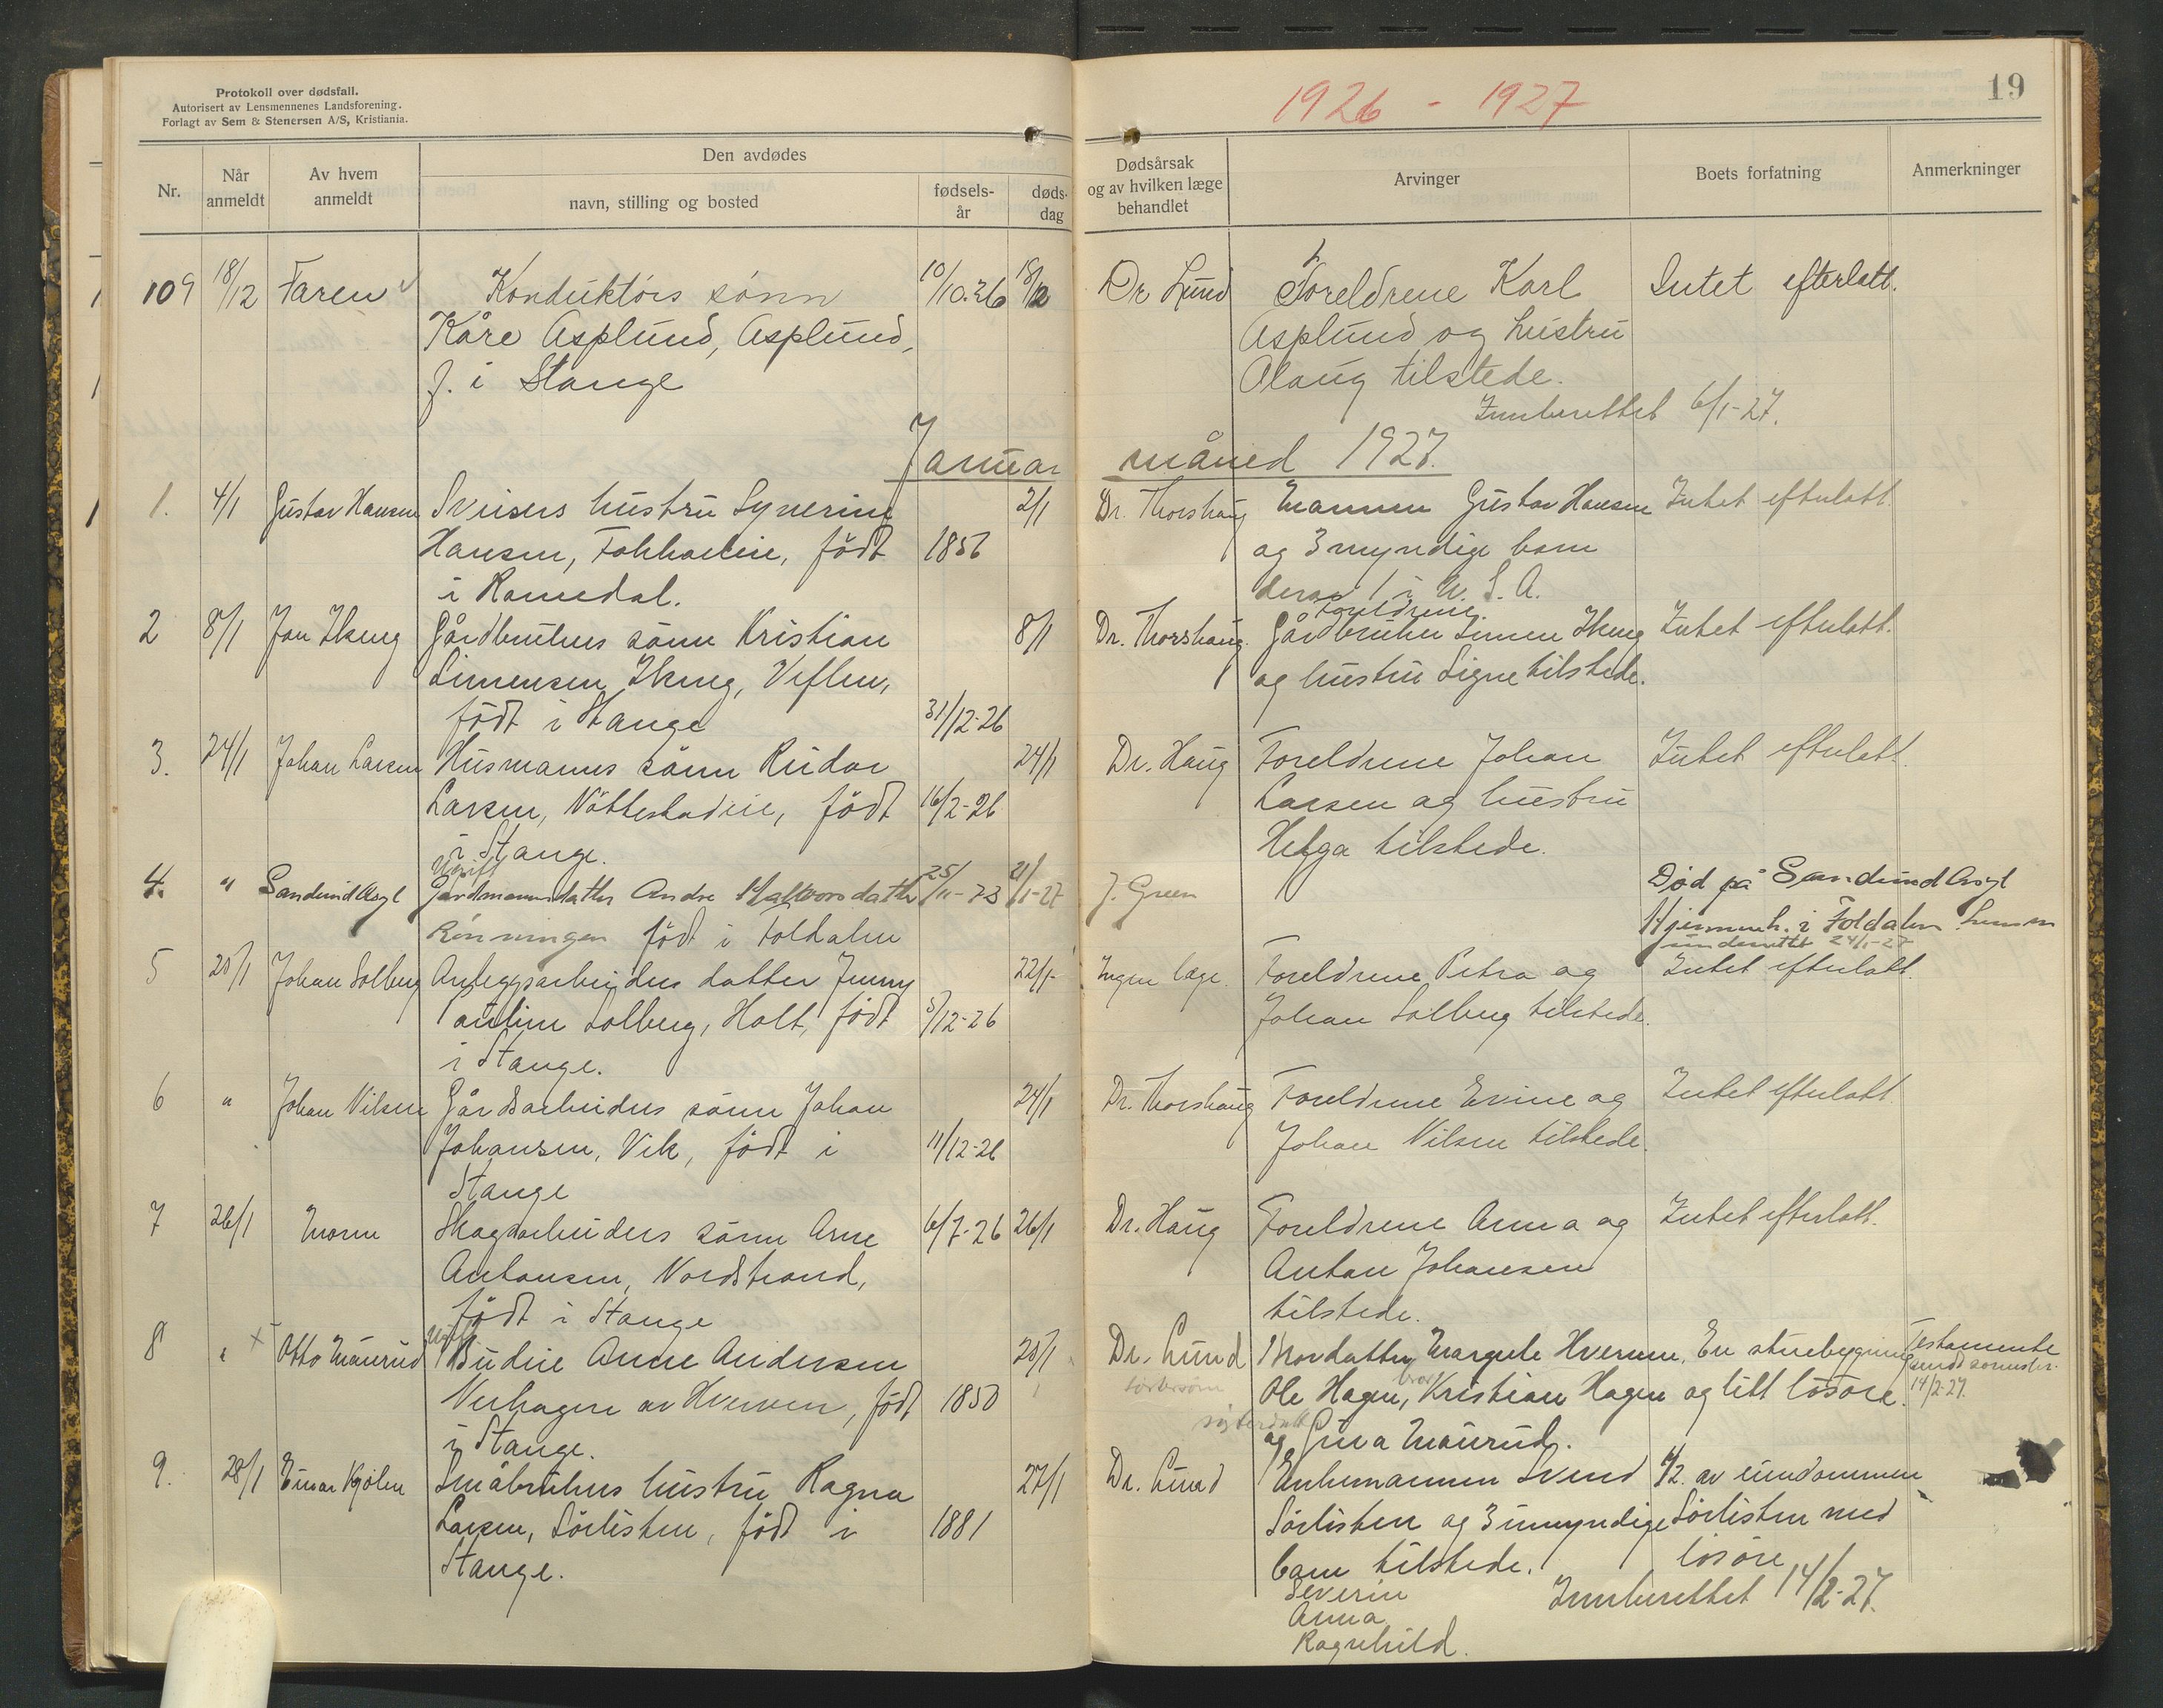 Protokoll over dødsfall.
Autorisert av Lensmennenes Landsforening.
Forlagt av Sem & Stenersen A/S, Kristiania.
1926 - 1927
19
Nr.
Når anmeldt
Av hvem anmeldt
Den avdødes
navn, stilling og bosted
fødsels-år
døds-dag
Dødsårsak og av hvilken læge behandlet
Arvinger
Boets forfatning
Anmerkninger
109 18/12 Faren Konduktørs sønn 10/10.26 18/12 Dr Lund Foreldrene Karl Intet efterlatt.
Kåre Asplund, Asplund, Asplund og hustru
f. i Stange Olaug tilstede.
Innberettet 6/1-27.
Januar måned 1927.
1. 4/1 Gustav Hansen Sveisers hustru Syverine 2/1 Dr. Thorshaug Mannen Gustav Hansen Intet efterlatt.
Hansen, født 1856 og 3 myndige barn
i Romedal. derav 1 i U.S.A.
2 8/1 Jan Gårdbrukers sønn Kristian 8/1 Dr. Thorshaug. Foreldrene Gårdbruker Simen Intet efterlatt.
Simensen Veflen, og hustru Signe tilstede.
født i Stange 31/12-26
3. 24/1 Johan Larsen Husmanns sønn Reidar 24/1 Dr. Haug Foreldrene Johan Intet efterlatt.
Larsen, født 16/2-26 Larsen og hustru
i Stange. Helga tilstede.
4. " Sandsund Asyl Ugift Gårdmannsdatter Andre Halvorsdatter 25/11-73 21/1-27 J. Green Død på Sandsund Asyl
Rønningen født i Foldalen Hjemmeh. i Foldalen
underrettet 24/1-27
5 25/1 Johan Solberg Anleggsarbeiders datter Jenny 22/1- Ingen læge. Foreldrene Petra og Intet efterlatt.
Pauline Solberg, Holt, født 5/12-26 Johan Solberg tilstede.
i Stange.
6 " Johan Nilsen Gårdsarbeiders sønn Johan 24/1 Dr. Thorshaug Foreldrene Evine og Intet efterlatt.
Johansen, Vik, født i 11/12-26 Johan Nilsen tilstede.
Stange
7 26/1 Moren Skogsarbeiders sønn Arne 6/7-26 26/1 Dr. Haug Foreldrene Anna og Intet efterlatt.
Antonsen, Nordstrand, Anton Johansen
født i Stange tilstede.
8 " × Otto Maurud Ugift Budeie Anne Andersen 25/1 Dr. Lund Brordatter Margrete Hverven, En stuebygning Testamente
av Hverven, født 1850 Ole Hagen, Kristian Hagen og litt løsøre. 14/2-27.
i Stange. og Gina Maurud.
9. 28/1 Einar Kjølen Småbrukers hustru Ragna 27/1 Dr. Lund Enkemannen Svend 1/2 av eiendommen
Larsen, Sørlisten, født i 1881 Sørlisten og 3 umyndige Sørlisten med
Stange. barn tilstede. løsøre
Severin
Innberettet 14/2-27.
Anna
Ragnhild.